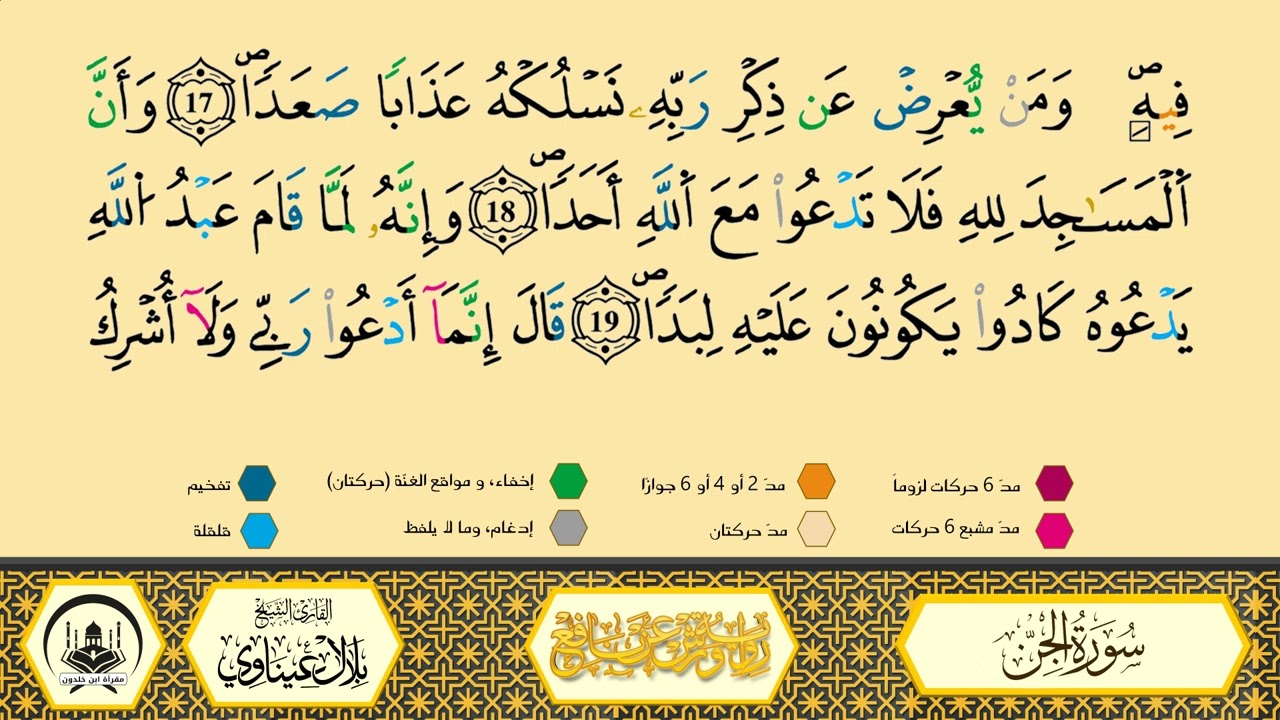 فِيهِۖ وَمَنْ يُّعْرِضْ عَن ذِكْرِ رَبِّهِۦ نَسْلُكْهُ عَذَابٗا صَعَدٗاۖ 17 وَأَنَّ
اَ۬لْمَسَٰجِدَ لِلهِ فَلَا تَدْعُواْ مَعَ اَ۬للَّهِ أَحَدٗاۖ 18 وَإِنَّهُۥ لَمَّا قَامَ عَبْدُ اُ۬للَّهِ
يَدْعُوهُ كَادُواْ يَكُونُونَ عَلَيْهِ لِبَدٗاۖ 19 قَالَ إِنَّمَآ أَدْعُواْ رَبِّے وَلَآ أُشْرِكُ
مدّ 6 حركات لزوماً
مدّ 2 أو 4 أو 6 جوازًا
إخفاء، و مواقع الغنّة (حركتان)
تفخيم
مدّ مشبع 6 حركات
مدّ حركتان
إدغام، وما لا يلفظ
قلقلة
سُورَةُ الجِنّ
رواية ورش عن نافع
القارئ الشيخ
بلال عيناوي
مقرأة ابن خلدون